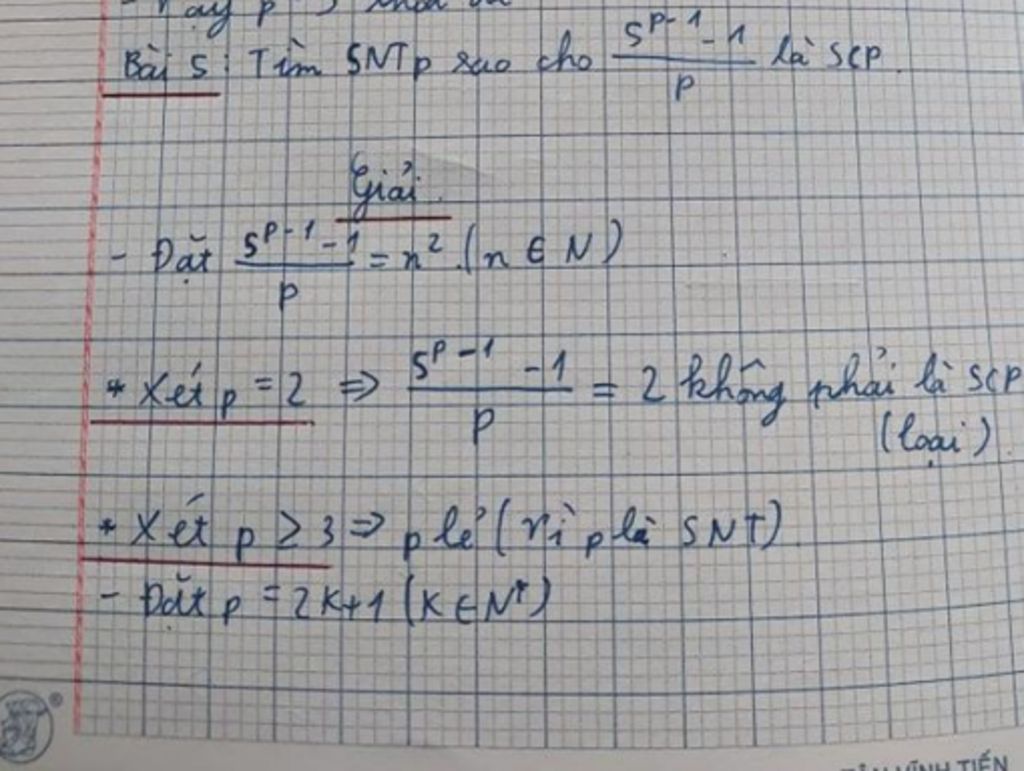 Bài 5: Tìm SNT p sao cho (5^{p-1} - 1)/p là SCP.
Giải.
- Đặt (5^{p-1} - 1)/p = n². (n ∈ N)
* Xét p = 2 ⇒ (5^{p-1} - 1)/p = 2 không phải là SCP
(loại).
* Xét p ≥ 3 ⇒ p lẻ (vì p là SNT).
- Đặt p = 2K+1 (K ∈ N*)
VĨNH TIẾN